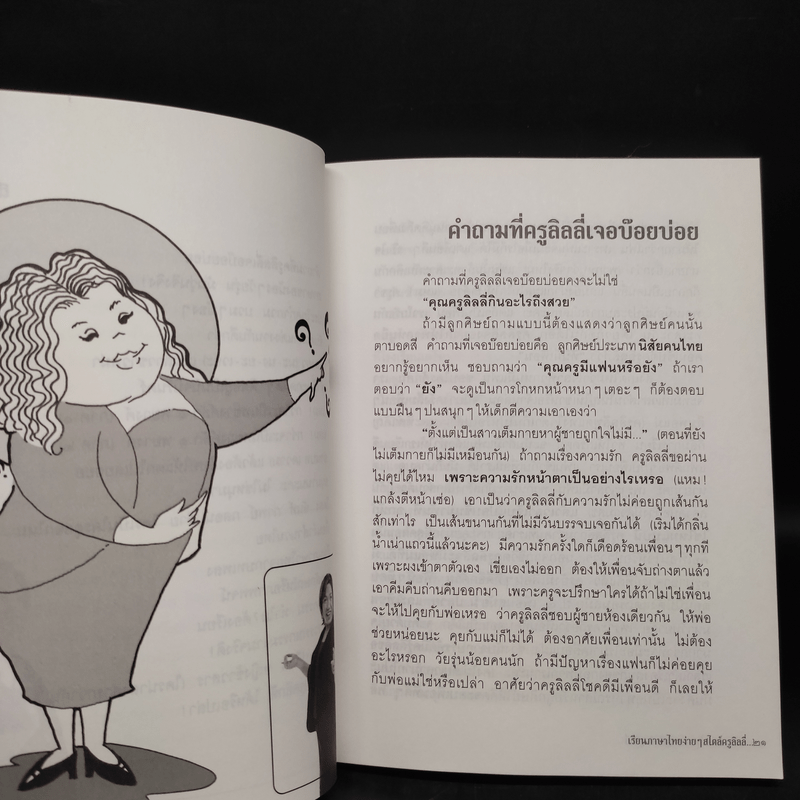 คำถามที่ครูลิลลี่เจอบ๊อยบ่อย
คำถามที่ครูลิลลี่เจอบ๊อยบ่อยคงจะไม่ใช่
“คุณครูลิลลี่กินอะไรถึงสวย”
ถ้ามีลูกศิษย์ถามแบบนี้ต้องแสดงว่าลูกศิษย์คนนั้น
ตาบอดสี คำถามที่เจอบ๊อยบ่อยคือ ลูกศิษย์ประเภทนิสัยคนไทย
อยากรู้อยากเห็น ชอบถามว่า “คุณครูมีแฟนหรือยัง” ถ้าเรา
ตอบว่า “ยัง” จะดูเป็นการโกหกหน้าหนาๆ เตอะๆ ก็ต้องตอบ
แบบฝืนๆ ปนสนุกๆ ให้เด็กตีความเอาเองว่า
“ตั้งแต่เป็นสาวเต็มกายหาผู้ชายถูกใจไม่มี...” (ตอนที่ยัง
ไม่เต็มกายก็ไม่มีเหมือนกัน) ถ้าถามเรื่องความรัก ครูลิลลี่ขอผ่าน
ไม่คุยได้ไหม เพราะความรักหน้าตาเป็นอย่างไรเหรอ (แหม!
แกล้งตีหน้าเซ่อ) เอาเป็นว่าครูลิลลี่กับความรักไม่ค่อยถูกเส้นกัน
สักเท่าไร เป็นเส้นขนานกันที่ไม่มีวันบรรจบเจอกันได้ (เริ่มได้กลิ่น
น้ำเน่าแถวนี้แล้วนะคะ) มีความรักครั้งใดก็เดือดร้อนเพื่อนๆ ทุกที
เพราะผงเข้าตาตัวเอง เขี่ยเองไม่ออก ต้องให้เพื่อนจับถ่างตาแล้ว
เอาคีมคีบถ่านคีบออกมา เพราะครูจะปรึกษาใครได้ถ้าไม่ใช่เพื่อน
จะให้ไปคุยกับพ่อเหรอ ว่าครูลิลลี่ชอบผู้ชายห้องเดียวกัน ให้พ่อ
ช่วยหน่อยนะ คุยกับแม่ก็ไม่ได้ ต้องอาศัยเพื่อนเท่านั้น ไม่ต้อง
อะไรหรอก วัยรุ่นน้อยคนนัก ถ้ามีปัญหาเรื่องแฟนก็ไม่ค่อยคุย
กับพ่อแม่ใช่หรือเปล่า อาศัยว่าครูลิลลี่โชคดีมีเพื่อนดี ก็เลยให้
เรียนภาษาไทยง่ายๆ สไตล์ครูลิลลี่...๒๑